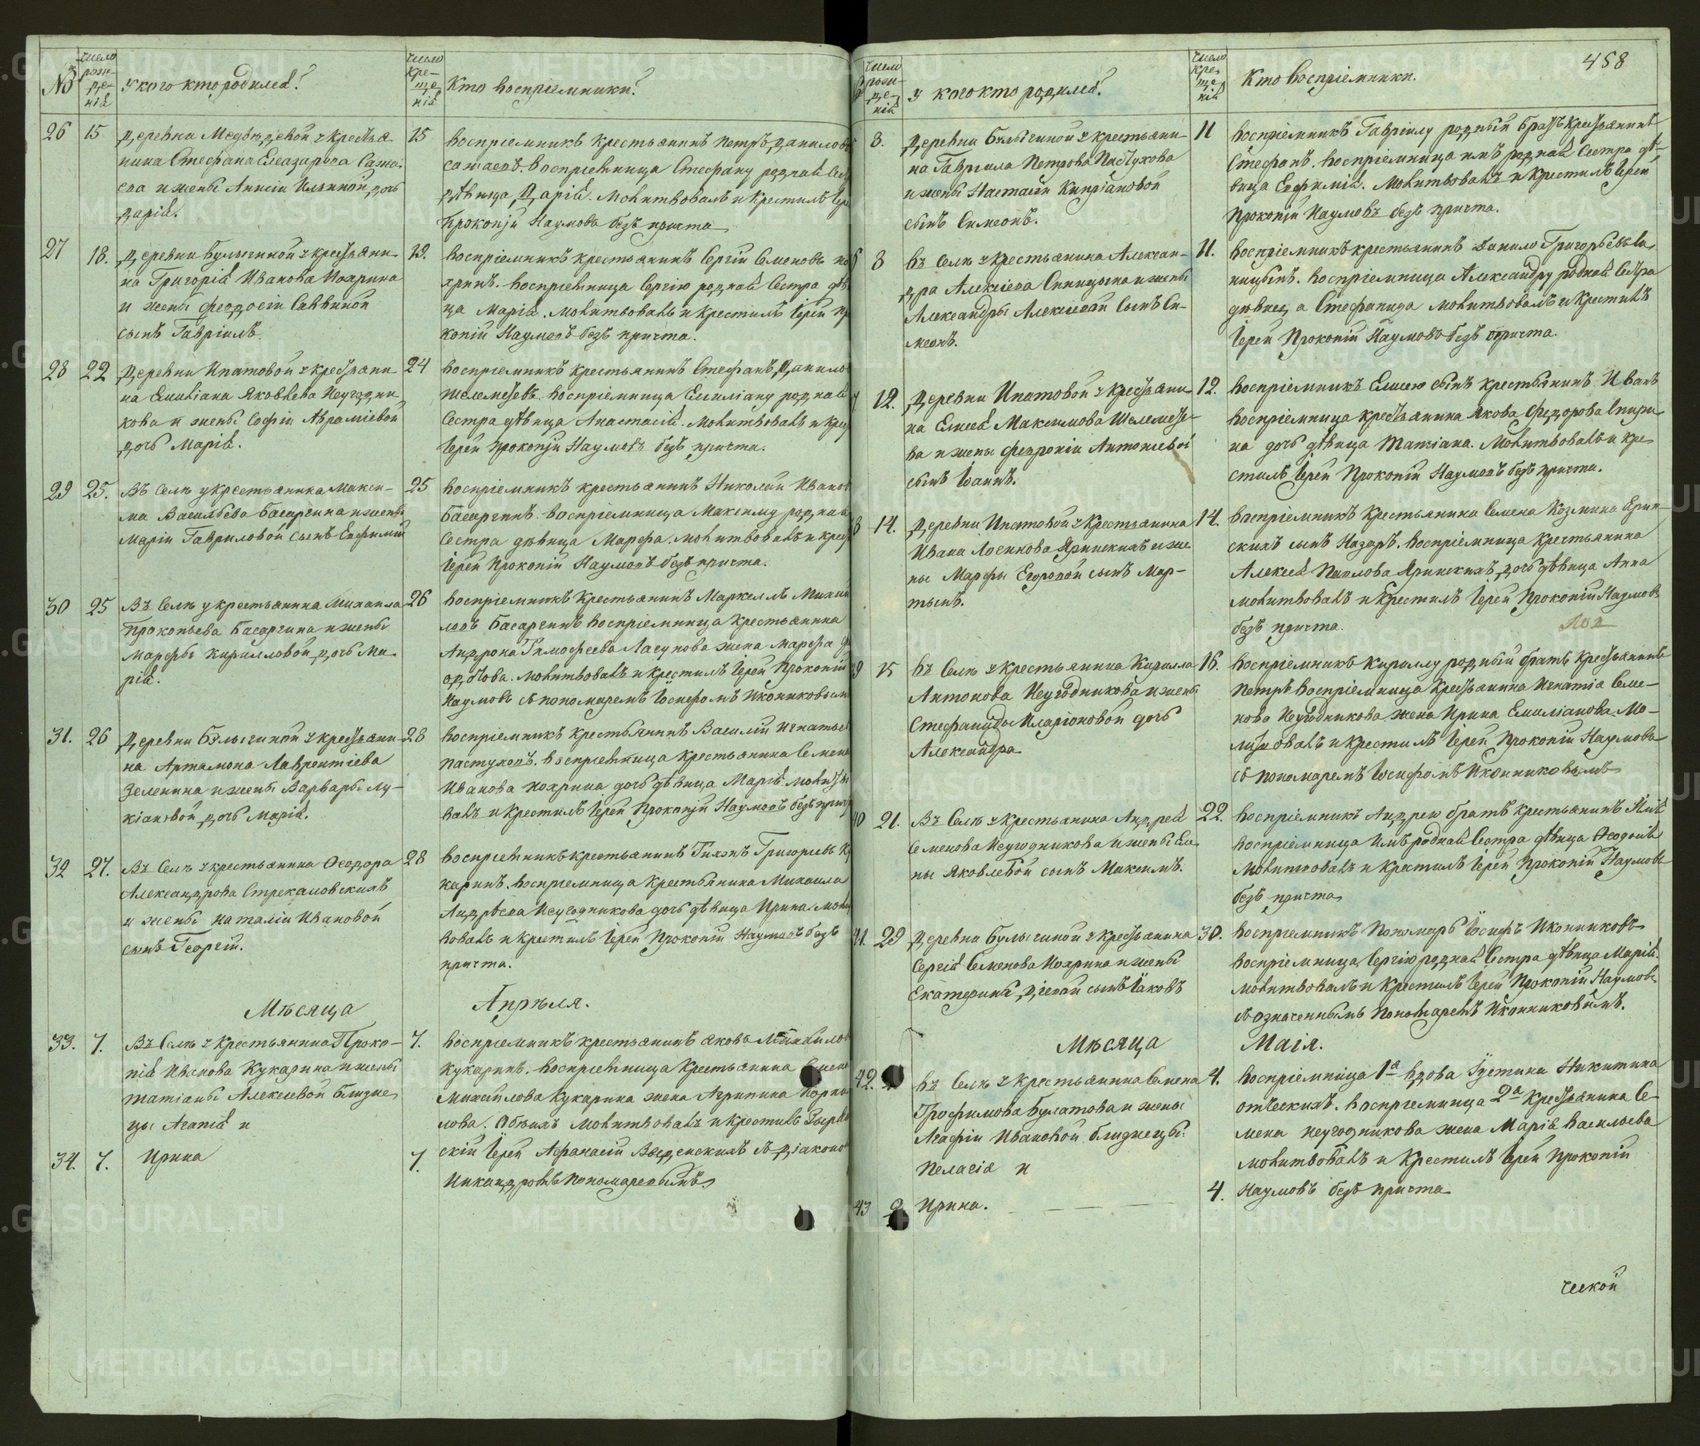 №
число рождения
У кого кто родился?
число крещения
Кто воспріемники?
26 15 Деревни Медведевой у крестья-
нина Стефана Елеазарова Сажа-
ева и жены Анисіи Ильиной дочь
Дарія.
15 Воспріемникъ крестьянинъ Петръ Данилов
Сажаевъ. Воспріемница Стефану родная сес
девица Дарія. Молитвовалъ и крестилъ Іере
Прокопій Наумовъ безъ причта
27 18. Деревни Булыгиной у крестьяни-
на Григорія Иванова Кокрина
и жены Феодосіи Саввиной
сынъ Гавріилъ.
19. Воспріемникъ крестьянинъ Сергій Семеновъ Ко
кринъ. Воспріемница Сергію родная сестра дѣ
ца Марія. Молитвовалъ и крестилъ Іерей Про
копій Наумовъ безъ причта.
28 22 Деревни Ипатовой у крестьяни-
на Емиліана Яковлева Неугодни-
кова и жены Софіи Авраміевой
дочь Марія.
24 Воспріемникъ крестьянинъ Стефанъ Данило
Шелементьевъ. Воспріемница Емиліану родная
сестра дѣвица Анастасія. Молитвовалъ и крес
Іерей Прокопій Наумовъ безъ причта.
29 25. Въ Селѣ у крестьянина Макси-
ма Васильева Басаргина и жены
Маріи Гавриловой сынъ Евфимій
25 Воспріемникъ крестьянинъ Николай Иванов
Басаргинъ. Воспріемница Максиму родная
сестра дѣвица Марфа. Молитвовалъ и крес
Іерей Прокопій Наумовъ безъ причта.
30 25 Въ Селѣ у крестьянина Михаила
Прокопьева Басаргина и жены
Марфы Кирилловой дочь Ма-
рія.
26 Воспріемникъ крестьянинъ Маркеллъ Михай
ловъ Басаргинъ Воспріемница крестьянина
Андрона Тимофеева Ласукова жена Марфа Ф
одотова. Молитвовалъ и крестилъ Іерей Прокопій
Наумовъ съ пономаремъ Іосифомъ Иконниковым
31. 26 Деревни Булыгиной у крестьяни-
на Артамона Лаврентіева
Зеленина и жены Варвары Лу-
кіановой дочь Марія.
28 Воспріемникъ крестьянинъ Василій Игнатье
Пастуховъ. Воспріемница крестьянина Семена
Иванова Кокрина дочь дѣвица Марія. Молитв
валъ и крестилъ Іерей Прокопій Наумовъ безъ прич
32 27. Въ Селѣ у крестьянина Феодора
Александрова Стрекаловскихъ
и жены Наталіи Ивановой
сынъ Георгій.
28 Воспріемникъ крестьянинъ Тихонъ Григорьевъ К
каринъ. Воспріемница крестьянина Михаила
Андрѣева Неугодникова дочь дѣвица Ирина. Моли
вовалъ и крестилъ Іерей Прокопій Наумовъ безъ
причта.
Мѣсяца Апрѣля.
33. 7. Въ Селѣ у крестьянина Проко-
пія Иванова Кукарина и жены
Татіаны Алексіевой близне-
цы Агапія и
7. Воспріемникъ крестьянинъ Яковъ Михайлов
Кукаринъ. Воспріемница крестьянина Семен
Михайлова Кукарина жена Агрипина Карпи
лова. Обоихъ молитвовалъ и крестилъ Зыря
34. 7. Ирина
7. скій Іерей Афанасій Введенскихъ съ діаконо
Никандромъ Пономаревымъ
458
число рожденій
У кого кто родился?
число крещеній
Кто воспріемники.
8. Деревни Булыгиной у крестьяни-
на Гавріила Петрова Пастухова
и жены Настасіи Кипріановой
сынъ Симеонъ.
11 Воспріемникъ Гавріилу родный братъ крестьянинъ
Стефанъ. Воспріемница имъ родная сестра дѣ-
вица Евфимія. Молитвовалъ и крестилъ Іерей
Прокопій Наумовъ безъ причта.
8 Въ Селѣ у крестьянина Алексан-
дра Алексіева Синицына и жены
Александры Алексіевой сынъ Си-
меонъ.
11. Воспріемникъ крестьянинъ Данило Григорьевъ Си-
ницынъ. Воспріемница Александру родная сестра
дѣвица Стефанида молитвовалъ и крестилъ
Іерей Прокопій Наумовъ безъ причта.
12. Деревни Ипатовой у крестьяни-
на Елисея Максимова Шелементье-
ва и жены Февроніи Антоніевой
сынъ Іоаннъ.
12. Воспріемникъ Елисею сынъ крестьянинъ Иванъ
Воспріемница крестьянина Якова Федорова Спири-
на дочь дѣвица Татіана. Молитвовалъ и кре-
стилъ Іерей Прокопій Наумовъ безъ причта.
14. Деревни Ипатовой у крестьянина
Ивана Логинова Яринскихъ и же-
ны Марфы Егоровой сынъ Мар-
тынъ.
14. Воспріемникъ крестьянина Семена Козмина Ярин-
скихъ сынъ Назаръ. Воспріемница крестьянина
Алексія Павлова Яринскихъ дочь дѣвица Анна
молитвовалъ и крестилъ Іерей Прокопій Наумовъ
безъ причта.
9 15 Въ Селѣ у крестьянина Кирилла
Антонова Неугодникова и жены
Стефаниды Иларіоновой дочь
Александра
16. Воспріемникъ Кириллу родный братъ крестьянинъ
Петръ Воспріемница крестьянина Игнатія Семе-
нова Неугодникова жена Ирина Емиліанова. Мо-
литвовалъ и крестилъ Іерей Прокопій Наумовъ
съ пономаремъ Іосифомъ Иконниковымъ
21. Въ Селѣ у крестьянина Андрея
Семенова Неугодникова и жены Еле-
ны Яковлевой сынъ Максимъ.
22. Воспріемникъ Андрею братъ крестьянинъ
Воспріемница имъ родная сестра дѣвица Феодосья
Молитвовалъ и крестилъ Іерей Прокопій Наумовъ
безъ причта
41. 29 Деревни Булыгиной у крестьянина
Сергія Семенова Кокрина и жены
Екатерины сынъ Іаковъ
30. Воспріемникъ Пономарь Іосифъ Иконниковъ
Воспріемница Сергію родная сестра дѣвица Марія.
Молитвовалъ и крестилъ Іерей Прокопій Наумовъ
съ означеннымъ Пономаремъ Иконниковымъ.
Мѣсяца Маія.
42. Въ Селѣ у крестьянина Семена
Трофимова Булатова и жены
Агафіи Ивановой близнецы:
Пелагія и
4. Воспріемница 1я вдова Іустина Никитина
Воспріемница 2я крестьянина Се-
мена Неугодникова жена Марія Васильева
молитвовалъ и крестилъ Іерей Прокопій
43 2 Ирина.
4. Наумовъ безъ причта
ческой
METRIKI.GASO-URAL.RU